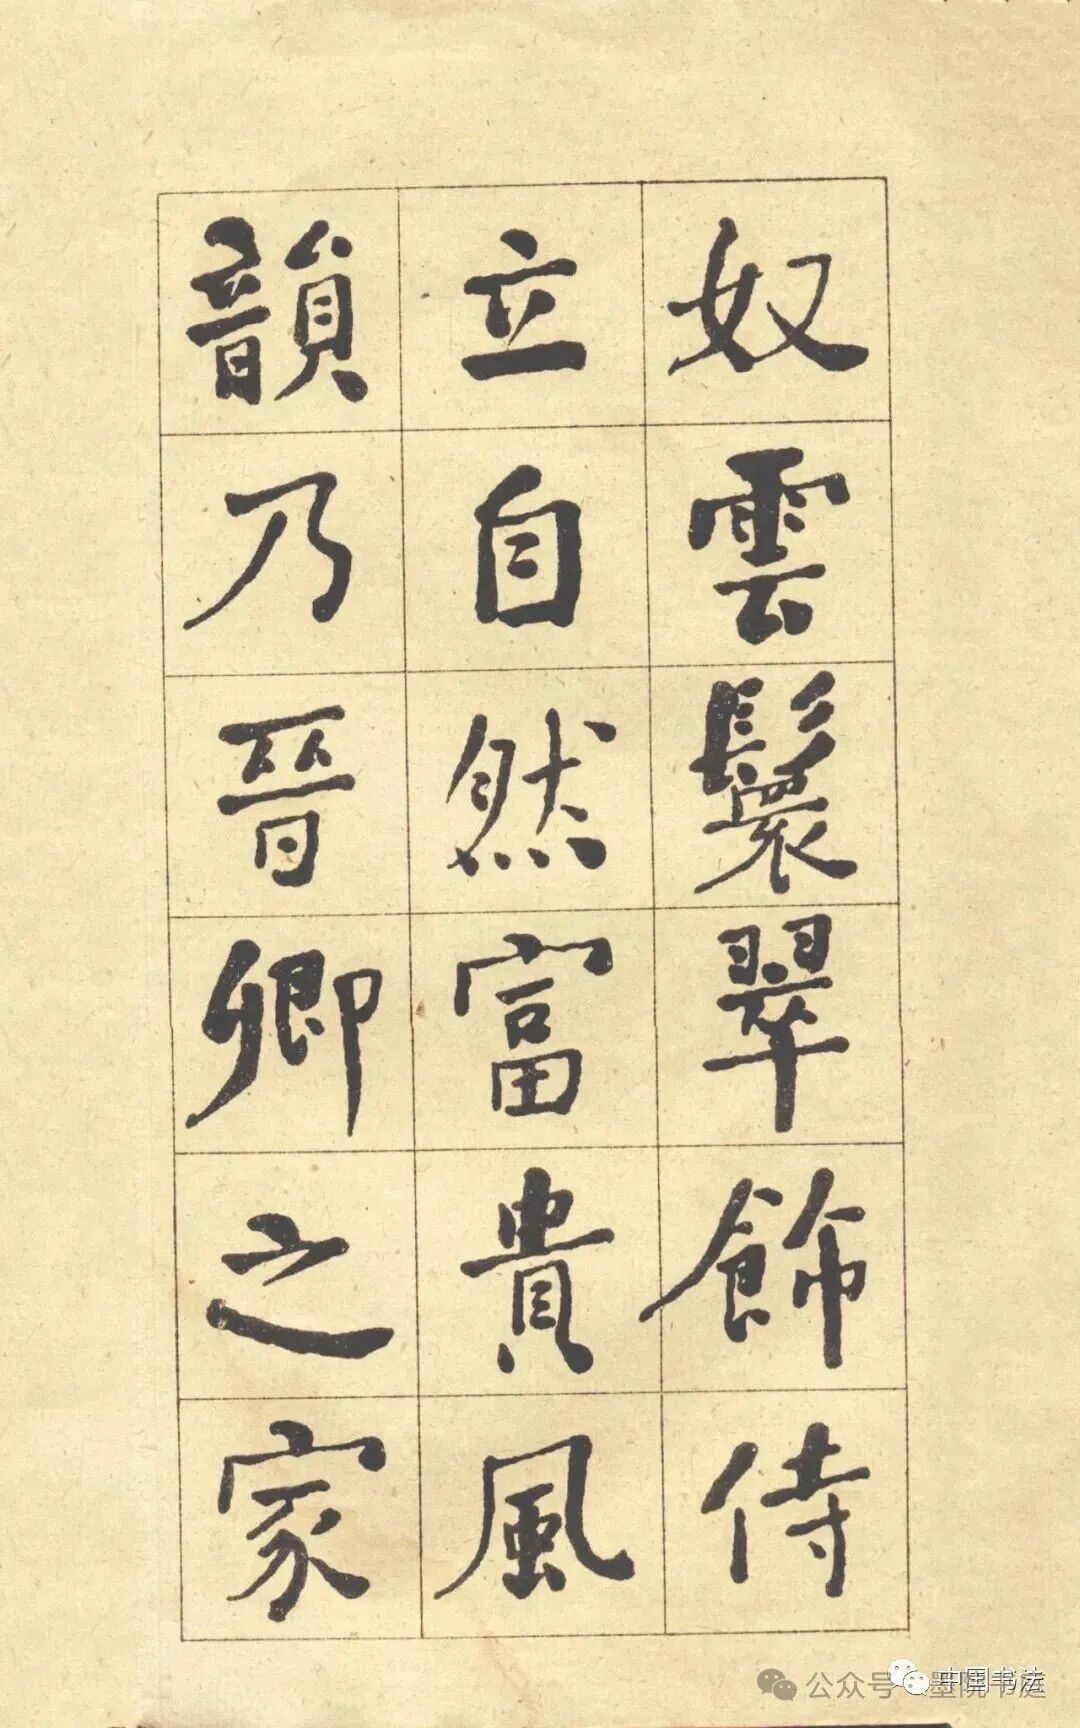 奴雲鬟翠飾侍
立自然富貴風
韻乃晉卿之家
公众号·墨院书庭
中国书法